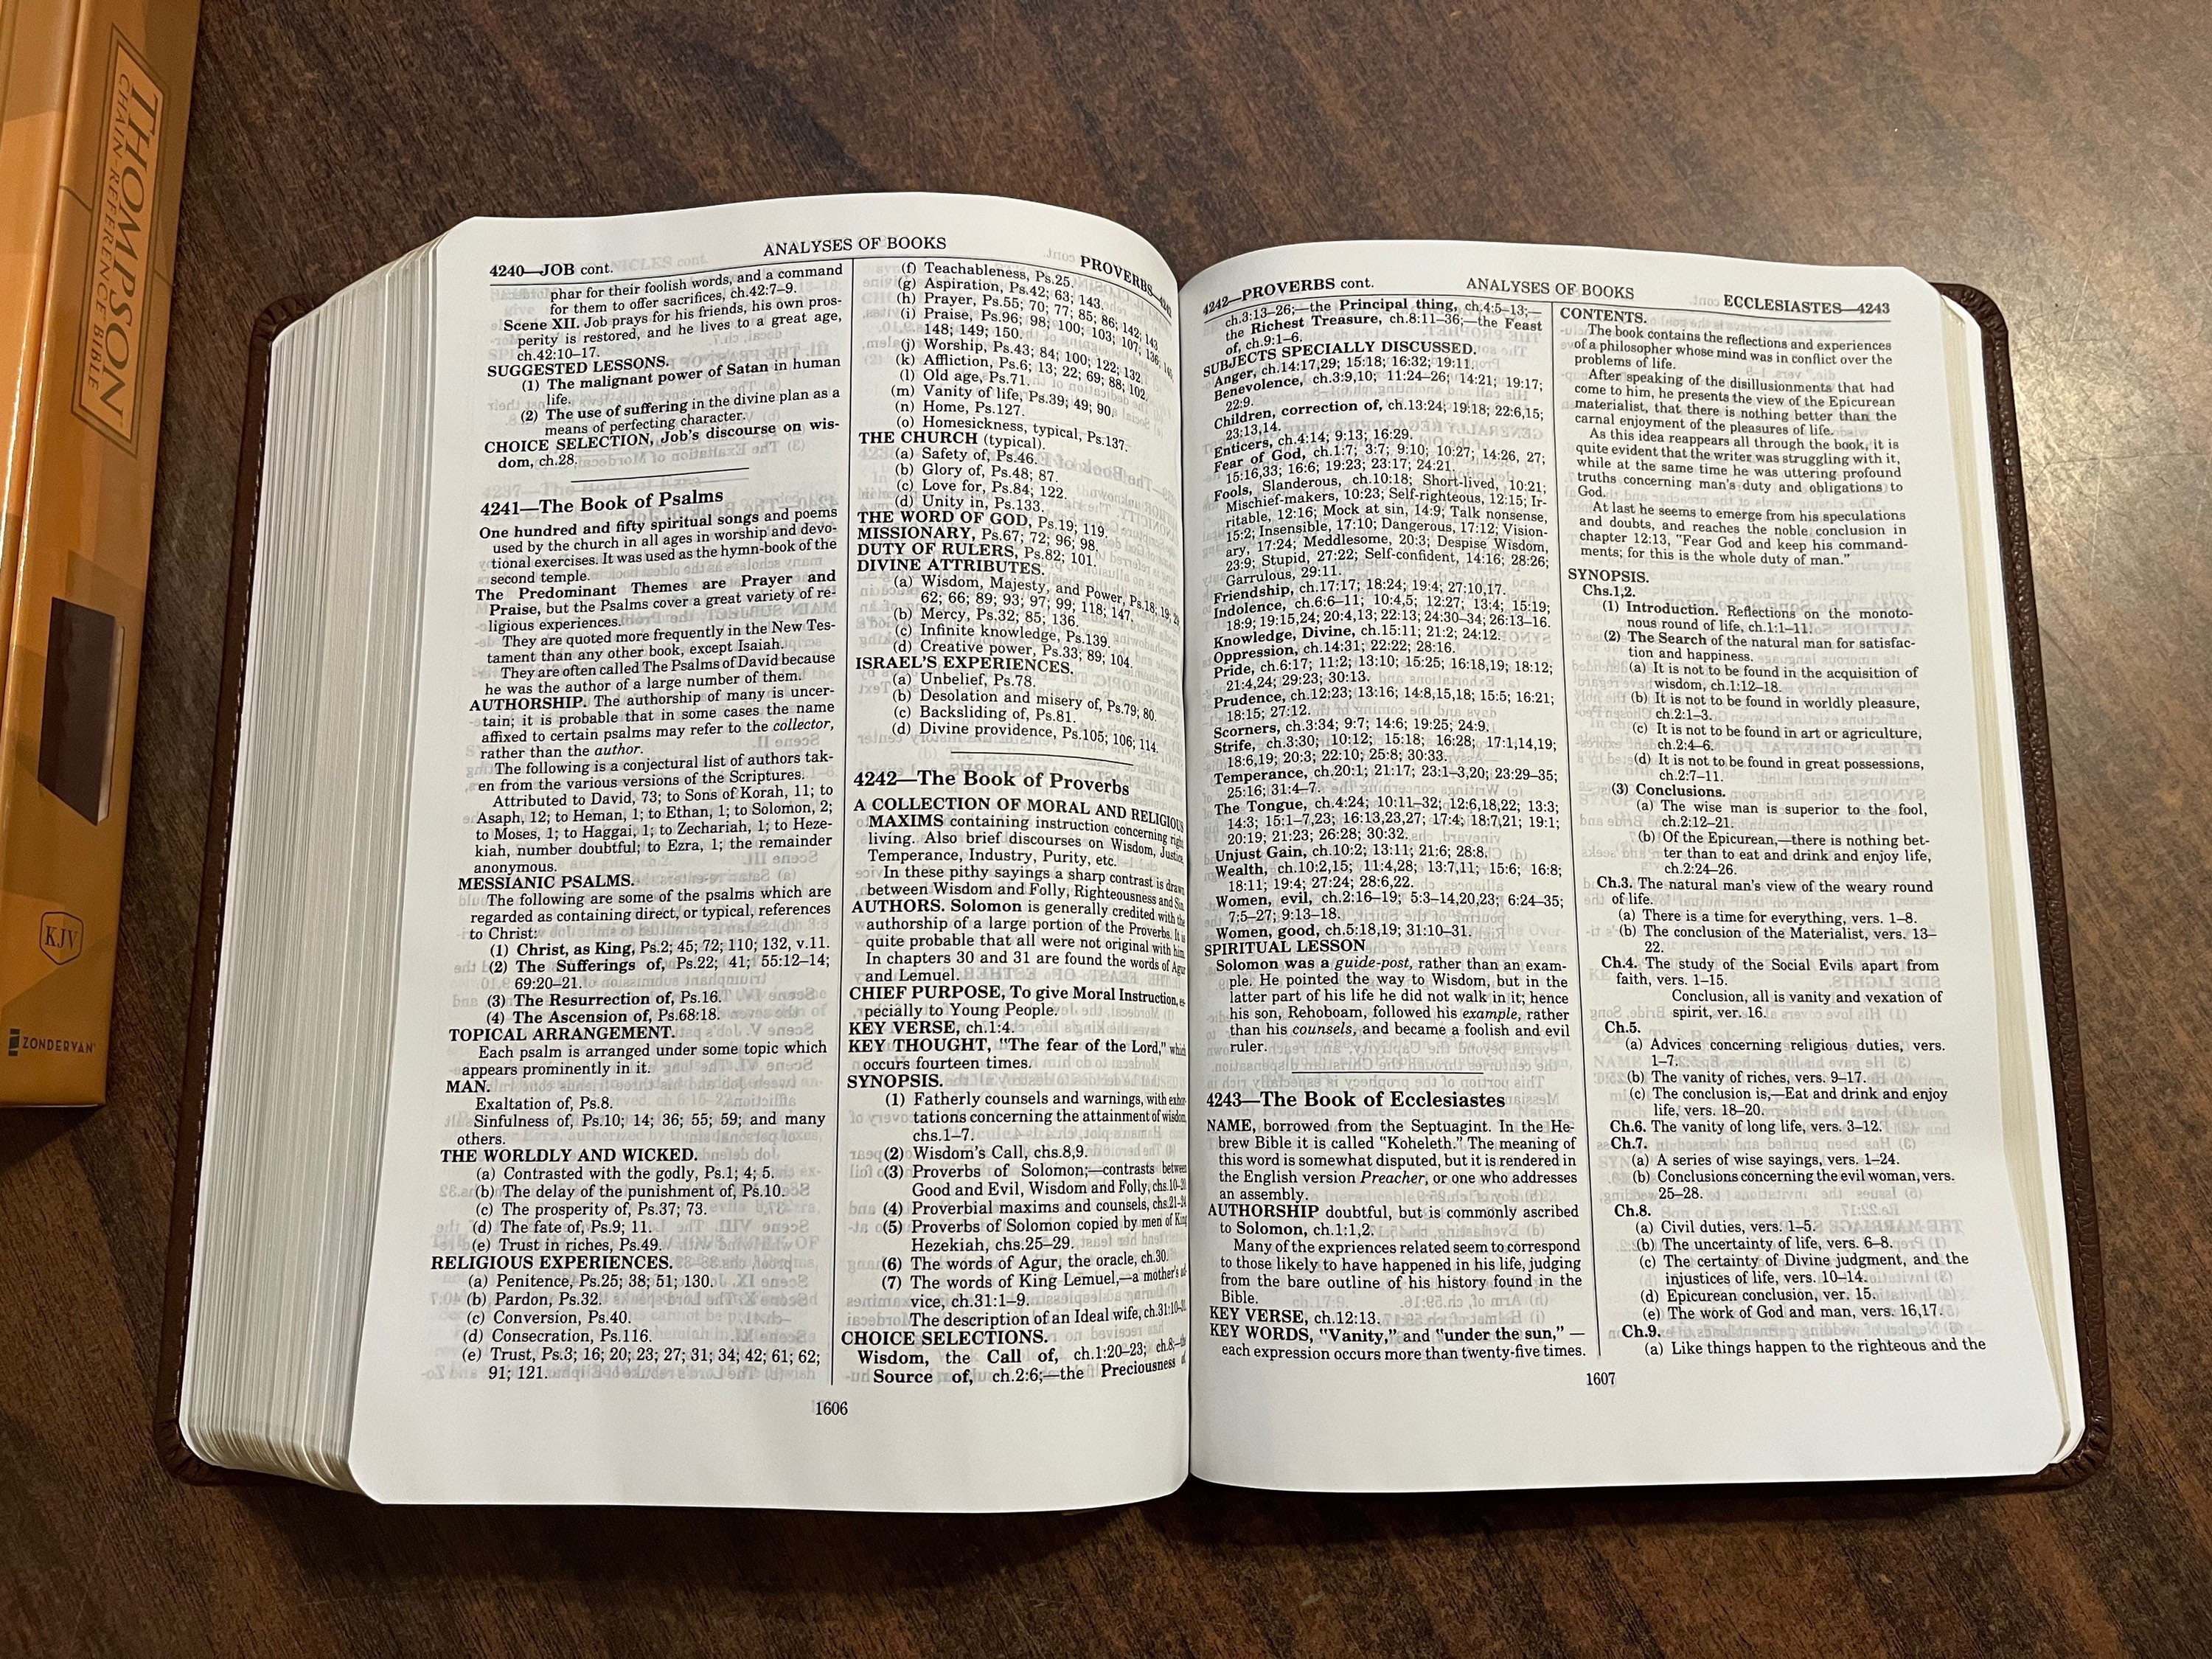 THOMPSON
CHAIN-REFERENCE BIBLE
KJV
ZONDERVAN
ANALYSES OF BOOKS
4240—JOB cont.
PROVERBS—4242
phar for their foolish words, and a command
for them to offer sacrifices, ch.42:7–9.
Scene XII. Job prays for his friends, his own pros-
perity is restored, and he lives to a great age,
ch.42:10–17.
SUGGESTED LESSONS.
(1) The malignant power of Satan in human
life.
(2) The use of suffering in the divine plan as a
means of perfecting character.
CHOICE SELECTION, Job's discourse on wis-
dom, ch.28.
4241—The Book of Psalms
One hundred and fifty spiritual songs and poems
used by the church in all ages in worship and devo-
tional exercises. It was used as the hymn-book of the
second temple.
The Predominant Themes are Prayer and
Praise, but the Psalms cover a great variety of re-
ligious experiences.
They are quoted more frequently in the New Tes-
tament than any other book, except Isaiah.
They are often called The Psalms of David because
he was the author of a large number of them.
AUTHORSHIP. The authorship of many is uncer-
tain; it is probable that in some cases the name
affixed to certain psalms may refer to the collector,
rather than the author.
The following is a conjectural list of authors tak-
en from the various versions of the Scriptures.
Attributed to David, 73; to Sons of Korah, 11; to
Asaph, 12; to Heman, 1; to Ethan, 1; to Solomon, 2;
to Moses, 1; to Haggai, 1; to Zechariah, 1; to Heze-
kiah, number doubtful; to Ezra, 1; the remainder
anonymous.
MESSIANIC PSALMS.
The following are some of the psalms which are
regarded as containing direct, or typical, references
to Christ:
(1) Christ, as King, Ps.2; 45; 72; 110; 132, v.11.
(2) The Sufferings of, Ps.22; 41; 55:12–14;
69:20–21.
(3) The Resurrection of, Ps.16.
(4) The Ascension of, Ps.68:18.
TOPICAL ARRANGEMENT.
Each psalm is arranged under some topic which
appears prominently in it.
MAN.
Exaltation of, Ps.8.
Sinfulness of, Ps.10; 14; 36; 55; 59; and many
others.
THE WORLDLY AND WICKED.
(a) Contrasted with the godly, Ps.1; 4; 5.
(b) The delay of the punishment of, Ps.10.
(c) The prosperity of, Ps.37; 73.
(d) The fate of, Ps.9; 11.
(e) Trust in riches, Ps.49.
RELIGIOUS EXPERIENCES.
(a) Penitence, Ps.25; 38; 51; 130.
(b) Pardon, Ps.32.
(c) Conversion, Ps.40.
(d) Consecration, Ps.116.
(e) Trust, Ps.3; 16; 20; 23; 27; 31; 34; 42; 61; 62;
91; 121.
(f) Teachableness, Ps.25.
(g) Aspiration, Ps.42; 63; 143.
(h) Prayer, Ps.55; 70; 77; 85; 86; 142; 143.
(i) Praise, Ps.96; 98; 100; 103; 107; 136;
148; 149; 150.
(j) Worship, Ps.43; 84; 100; 122; 132.
(k) Affliction, Ps.6; 13; 22; 69; 88; 102.
(l) Old age, Ps.71.
(m) Vanity of life, Ps.39; 49; 90.
(n) Home, Ps.127.
(o) Homesickness, typical, Ps.137.
THE CHURCH (typical).
(a) Safety of, Ps.46.
(b) Glory of, Ps.48; 87.
(c) Love for, Ps.84; 122.
(d) Unity in, Ps.133.
THE WORD OF GOD, Ps.19; 119.
MISSIONARY, Ps.67; 72; 96; 98.
DUTY OF RULERS, Ps.82; 101.
DIVINE ATTRIBUTES.
(a) Wisdom, Majesty, and Power, Ps.18; 19;
62; 66; 89; 93; 97; 99; 118; 147.
(b) Mercy, Ps.32; 85; 136.
(c) Infinite knowledge, Ps.139.
(d) Creative power, Ps.33; 89; 104.
ISRAEL'S EXPERIENCES.
(a) Unbelief, Ps.78.
(b) Desolation and misery of, Ps.79; 80.
(c) Backsliding of, Ps.81.
(d) Divine providence, Ps.105; 106; 114.
4242—The Book of Proverbs
A COLLECTION OF MORAL AND RELIGIOUS
MAXIMS containing instruction concerning right
living. Also brief discourses on Wisdom, Justice,
Temperance, Industry, Purity, etc.
In these pithy sayings a sharp contrast is drawn
between Wisdom and Folly, Righteousness and Sin.
AUTHORS. Solomon is generally credited with the
authorship of a large portion of the Proverbs. It is
quite probable that all were not original with him.
In chapters 30 and 31 are found the words of Agur
and Lemuel.
CHIEF PURPOSE, To give Moral Instruction, es-
pecially to Young People.
KEY VERSE, ch.1:4.
KEY THOUGHT, "The fear of the Lord," which
occurs fourteen times.
SYNOPSIS.
(1) Fatherly counsels and warnings, with exhor-
tations concerning the attainment of wisdom,
chs.1–7.
(2) Wisdom's Call, chs.8,9.
(3) Proverbs of Solomon;—contrasts between
Good and Evil, Wisdom and Folly, chs.10–20.
(4) Proverbial maxims and counsels, chs.21–24.
(5) Proverbs of Solomon copied by men of King
Hezekiah, chs.25–29.
(6) The words of Agur, the oracle, ch.30.
(7) The words of King Lemuel,—a mother's ad-
vice, ch.31:1–9.
The description of an Ideal wife, ch.31:10–31.
CHOICE SELECTIONS.
Wisdom, the Call of, ch.1:20–23; ch.8;—the
Source of, ch.2:6;—the Preciousness of
1606
4242—PROVERBS cont.
ANALYSES OF BOOKS
ECCLESIASTES—4243
ch.3:13–26;—the Principal thing, ch.4:5–13;—
the Richest Treasure, ch.8:11–36;—the Feast
of, ch.9:1–6.
SUBJECTS SPECIALLY DISCUSSED.
Anger, ch.14:17,29; 15:18; 16:32; 19:11.
Benevolence, ch.3:9,10; 11:24–26; 14:21; 19:17;
22:9.
Children, correction of, ch.13:24; 19:18; 22:6,15;
23:13,14.
Enticers, ch.4:14; 9:13; 16:29.
Fear of God, ch.1:7; 3:7; 9:10; 10:27; 14:26, 27;
15:16,33; 16:6; 19:23; 23:17; 24:21.
Fools, Slanderous, ch.10:18; Short-lived, 10:21;
Mischief-makers, 10:23; Self-righteous, 12:15; Ir-
ritable, 12:16; Mock at sin, 14:9; Talk nonsense,
15:2; Insensible, 17:10; Dangerous, 17:12; Vision-
ary, 17:24; Meddlesome, 20:3; Despise Wisdom,
23:9; Stupid, 27:22; Self-confident, 14:16; 28:26;
Garrulous, 29:11.
Friendship, ch.17:17; 18:24; 19:4; 27:10,17.
Indolence, ch.6:6–11; 10:4,5; 12:27; 13:4; 15:19;
18:9; 19:15,24; 20:4,13; 22:13; 24:30–34; 26:13–16.
Knowledge, Divine, ch.15:11; 21:2; 24:12.
Oppression, ch.14:31; 22:22; 28:16.
Pride, ch.6:17; 11:2; 13:10; 15:25; 16:18,19; 18:12;
21:4,24; 29:23; 30:13.
Prudence, ch.12:23; 13:16; 14:8,15,18; 15:5; 16:21;
18:15; 27:12.
Scorners, ch.3:34; 9:7; 14:6; 19:25; 24:9.
Strife, ch.3:30; 10:12; 15:18; 16:28; 17:1,14,19;
18:6,19; 20:3; 22:10; 25:8; 30:33.
Temperance, ch.20:1; 21:17; 23:1–3,20; 23:29–35;
25:16; 31:4–7.
The Tongue, ch.4:24; 10:11–32; 12:6,18,22; 13:3;
14:3; 15:1–7,23; 16:13,23,27; 17:4; 18:7,21; 19:1;
20:19; 21:23; 26:28; 30:32.
Unjust Gain, ch.10:2; 13:11; 21:6; 28:8.
Wealth, ch.10:2,15; 11:4,28; 13:7,11; 15:6; 16:8;
18:11; 19:4; 27:24; 28:6,22.
Women, evil, ch.2:16–19; 5:3–14,20,23; 6:24–35;
7:5–27; 9:13–18.
Women, good, ch.5:18,19; 31:10–31.
SPIRITUAL LESSON
Solomon was a guide-post, rather than an exam-
ple. He pointed the way to Wisdom, but in the
latter part of his life he did not walk in it; hence
his son, Rehoboam, followed his example, rather
than his counsels, and became a foolish and evil
ruler.
4243—The Book of Ecclesiastes
NAME, borrowed from the Septuagint. In the He-
brew Bible it is called "Koheleth." The meaning of
this word is somewhat disputed, but it is rendered in
the English version Preacher, or one who addresses
an assembly.
AUTHORSHIP doubtful, but is commonly ascribed
to Solomon, ch.1:1,2.
Many of the expriences related seem to correspond
to those likely to have happened in his life, judging
from the bare outline of his history found in the
Bible.
KEY VERSE, ch.12:13.
KEY WORDS, "Vanity," and "under the sun," —
each expression occurs more than twenty-five times.
CONTENTS.
The book contains the reflections and experiences
of a philosopher whose mind was in conflict over the
problems of life.
After speaking of the disillusionments that had
come to him, he presents the view of the Epicurean
materialist, that there is nothing better than the
carnal enjoyment of the pleasures of life.
As this idea reappears all through the book, it is
quite evident that the writer was struggling with it,
while at the same time he was uttering profound
truths concerning man's duty and obligations to
God.
At last he seems to emerge from his speculations
and doubts, and reaches the noble conclusion in
chapter 12:13, "Fear God and keep his command-
ments; for this is the whole duty of man."
SYNOPSIS.
Chs.1,2.
(1) Introduction. Reflections on the monoto-
nous round of life, ch.1:1–11.
(2) The Search of the natural man for satisfac-
tion and happiness.
(a) It is not to be found in the acquisition of
wisdom, ch.1:12–18.
(b) It is not to be found in worldly pleasure,
ch.2:1–3.
(c) It is not to be found in art or agriculture,
ch.2:4–6.
(d) It is not to be found in great possessions,
ch.2:7–11.
(3) Conclusions.
(a) The wise man is superior to the fool,
ch.2:12–21.
(b) Of the Epicurean,—there is nothing bet-
ter than to eat and drink and enjoy life,
ch.2:24–26.
Ch.3. The natural man's view of the weary round
of life.
(a) There is a time for everything, vers. 1–8.
(b) The conclusion of the Materialist, vers. 13–
22.
Ch.4. The study of the Social Evils apart from
faith, vers. 1–15.
Conclusion, all is vanity and vexation of
spirit, ver. 16.
Ch.5.
(a) Advices concerning religious duties, vers.
1–7.
(b) The vanity of riches, vers. 9–17.
(c) The conclusion is,—Eat and drink and enjoy
life, vers. 18–20.
Ch.6. The vanity of long life, vers. 3–12.
Ch.7.
(a) A series of wise sayings, vers. 1–24.
(b) Conclusions concerning the evil woman, vers.
25–28.
Ch.8.
(a) Civil duties, vers. 1–5.
(b) The uncertainty of life, vers. 6–8.
(c) The certainty of Divine judgment, and the
injustices of life, vers. 10–14.
(d) Epicurean conclusion, ver. 15.
(e) The work of God and man, vers. 16,17.
Ch.9.
(a) Like things happen to the righteous and the
1607